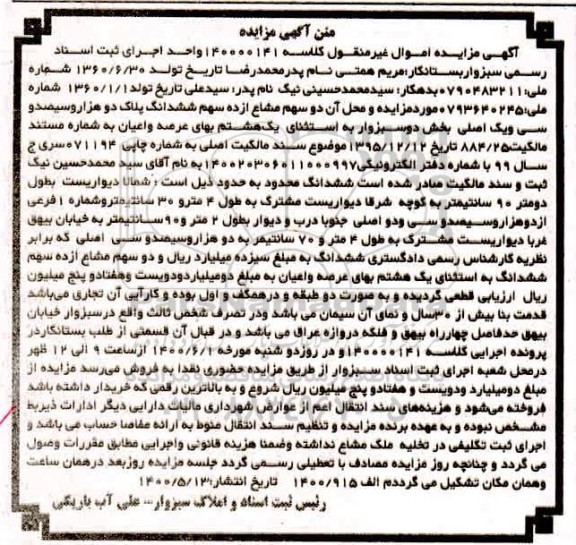 متن آگهی مزایده
آگهی مزایده اموال غیرمنقول کلاسه ۱۴۰۰۰۰۱۴۱واحد اجرای ثبت اسناد
رسمی سبزواربستانکار:مریم همتی نام پدرمحمدرضا تاریخ تولد ۱۳۶۰/۶/۳۰ شماره
ملی:۰۷۹۰۴۸۳۲۱۱بدهکار: سیدمحمدحسینی نیک نام پدر: سیدعلی تاریخ تولد۱۳۶۰/۱/۱ شماره
ملی:۰۷۹۳۶۴۰۲۴۵موردمزایده و محل آن دو سهم مشاع ازده سهم ششدانگ پلاک دو هزاروسیصدو
سی ویک اصلی بخش دوسبزوار به استثنای یک‌هشتم بهای عرصه واعیان به شماره مستند
مالکیت۸۸۴/۲۵ تاریخ ۱۳۹۵/۱۲/۱۲موضوع سند مالکیت اصلی به شماره چاپی ۰۷۱۱۹۴سری ج
سال ۹۹ با شماره دفتر الکترونیکی۱۴۰۰۲۰۳۰۶۰۱۱۰۰۰۹۹۷به نام آقای سید محمدحسین نیک
ثبت و سند مالکیت صادر شده است ششدانگ محدود به حدود ذیل است : شمالا دیواریست بطول
دومتر ۹۰ سانتیمتر به کوچه شرقا دیواریست مشترک به طول ۴ مترو ۳۰ سانتیمتروشماره ۱فرعی
ازدوهزاروسیصدو سی ودو اصلی جنوبا درب و دیوار بطول ۲ متر و۹۰سانتیمتر به خیابان بیهق
غربا دیواریست مشترک به طول ۴ متر و ۷۰ سانتیمر به دو هزاروسیصدو سی اصلی که برابر
نظریه کارشناس رسمی دادگستری ششدانگ به مبلغ سیزده میلیارد ریال و دو سهم مشاع ازده سهم
ششدانگ به استثنای یک هشتم بهای عرصه واعیان به مبلغ دومیلیاردودویست وهفتادو پنج میلیون
ریال ارزیابی قطعی گردیده و به صورت دو طبقه و درهمکف و اول بوده و کارآیی آن تجاری می‌باشد
قدمت بنا بیش از ۳۰سال و نمای آن سیمان می باشد ودر تصرف شخص ثالث واقع درسبزوار خیابان
بیهق حدفاصل چهارراه بیهق و فلکه دروازه عراق می باشد و در قبال آن قسمتی از طلب بستانکاردر
پرونده اجرایی کلاسه ۱۴۰۰۰۰۱۴۱و در روزدو شنبه مورخه ۱۴۰۰/۶/۱ ازساعت ۹ الی ۱۲ ظهر
درمحل شعبه اجرای ثبت اسناد سبزوار از طریق مزایده حضوری نقدا به فروش می‌رسد مزایده از
مبلغ دومیلیارد ودویست و هفتادو پنج میلیون ریال شروع و به بالاترین رقمی که خریدار داشته باشد
فروخته می‌شود و هزینه‌های سند انتقال اعم از عوارض شهرداری مالیات دارایی دیگر ادارات ذیربط
مشخص نبوده و به عهده برنده مزایده و تنظیم سند انتقال منوط به ارائه مفاصا حساب می باشد و
اجرای ثبت تکلیفی در تخلیه ملک مشاع نداشته وضمنا هزینه قانونی واجرایی مطابق مقررات وصول
می گردد و چنانچه روز مزایده مصادف با تعطیلی رسمی گردد جلسه مزایده روزبعد درهمان ساعت
وهمان مکان تشکیل می گرددم الف ۱۴۰۰/۹۱۵ تاریخ انتشار:۱۴۰۰/۵/۱۳
رئیس ثبت اسناد و املاک سبزوار... علی آب باریکی